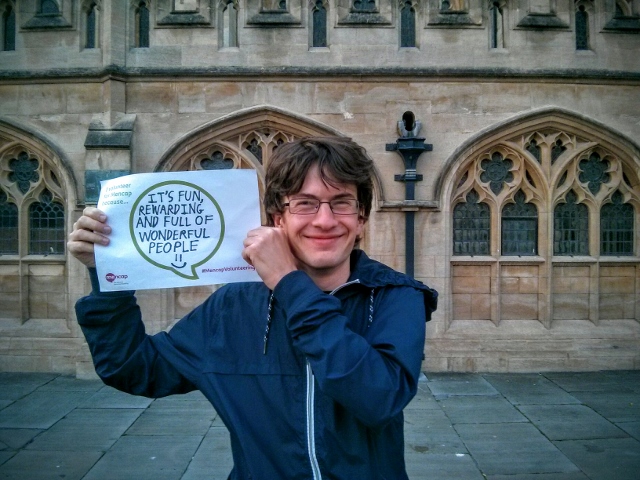 I volunteer
for Mencap
because...
IT'S FUN,
REWARDING
AND FULL OF
WONDERFUL
PEOPLE
mencap
#MencapVolunteering